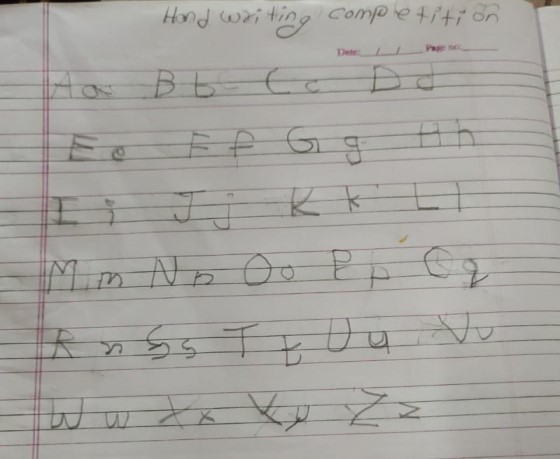 Hand writing competition
Date: / / Page no:
Aa Bb Cc Dd
Ee Ff Gg Hh
Ii Jj Kk Ll
Mm Nn Oo Pp Qq
Rr Ss Tt Uu Vv
Ww Xx Yy Zz